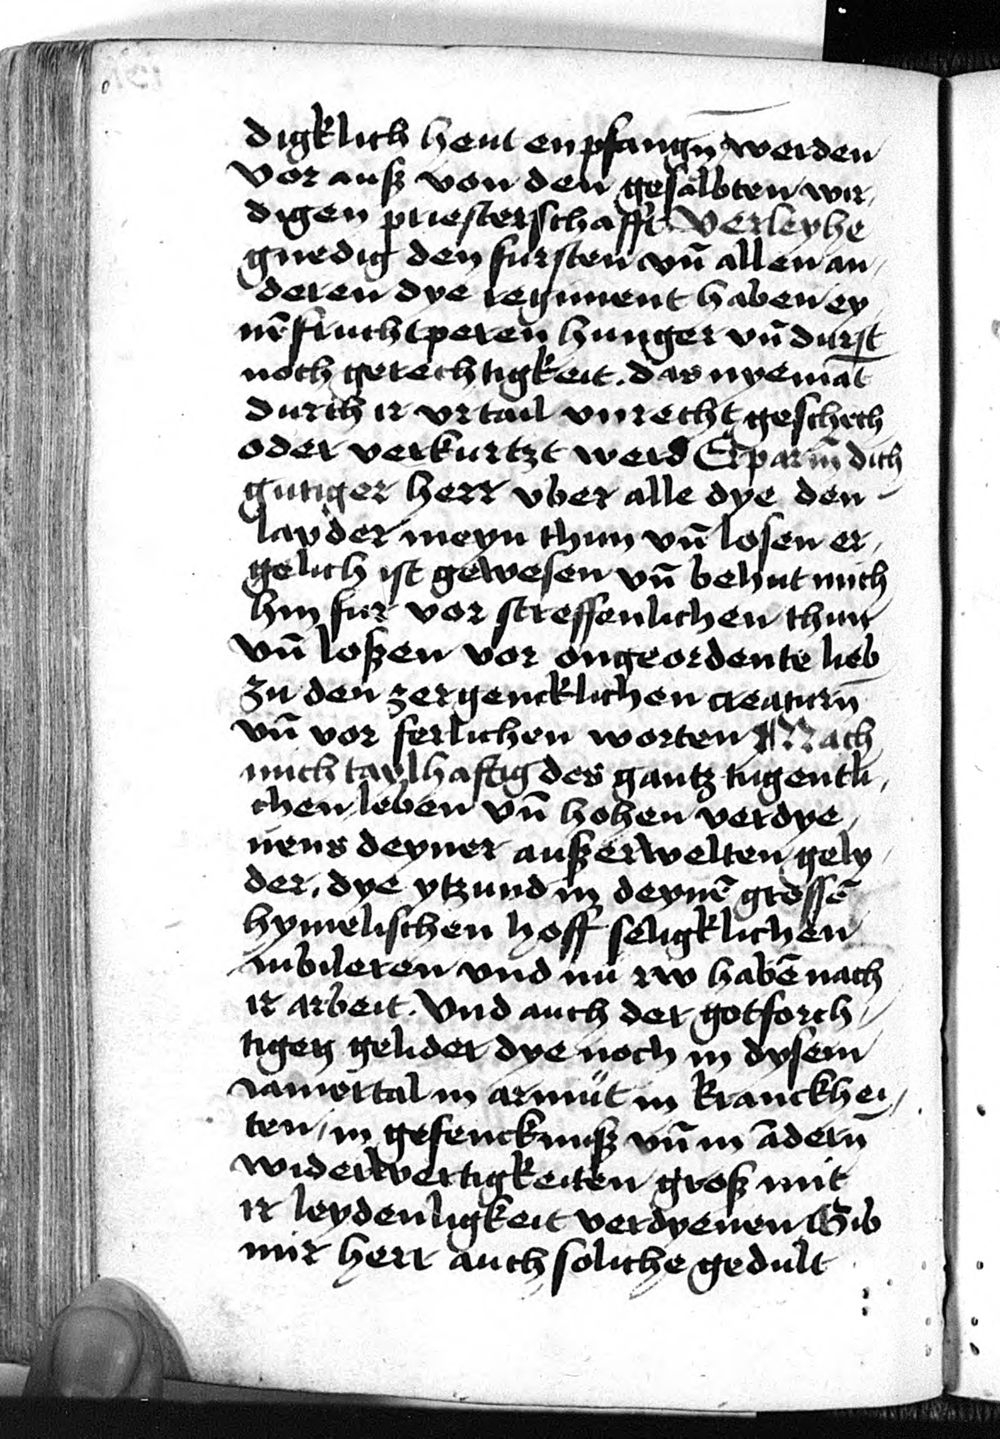 digklich heut enpfangñ werden
vor auß von den gesalbten wir,
digen priesterschafft Verleyhe
gnedig den fursten vñ allen an,
deren dye regiment haben ey,
nē fruchtperen hunger vñ durst
noch gerechtigkeit. das nyemāt
durch ir vrtail vnrecht geschech
oder verkurtzt werd Erparm̄ dich
gutiger herr vber alle dye den
layder meyn thun vñ losen er,
gelich ist gewesen vñ behut mich
hin fur vor streffenlichen thun
vñ loßen vor ongeordente lieb
zu den zergencklichen creaturñ
vñ vor ferlichen worten Mach
mich taylhaftig des gantz tugentli,
chen leben vñ hohen verdye,
nens deyner außerwelten gely,
der, dye ytzund in deynē grossē
hymelischen hoff seligklichen
iubileren vnd nu rw habē nach
ir arbeit. Vnd auch der gotforch,
tigen gelider dye noch in dysem
iamertal in armüt in kranckhei,
ten, in gefencknuß vñ in āderñ
widerwertigkeiten groß mit
ir leydenligkeit verdyenen Gib
mir herr auch soliche gedult